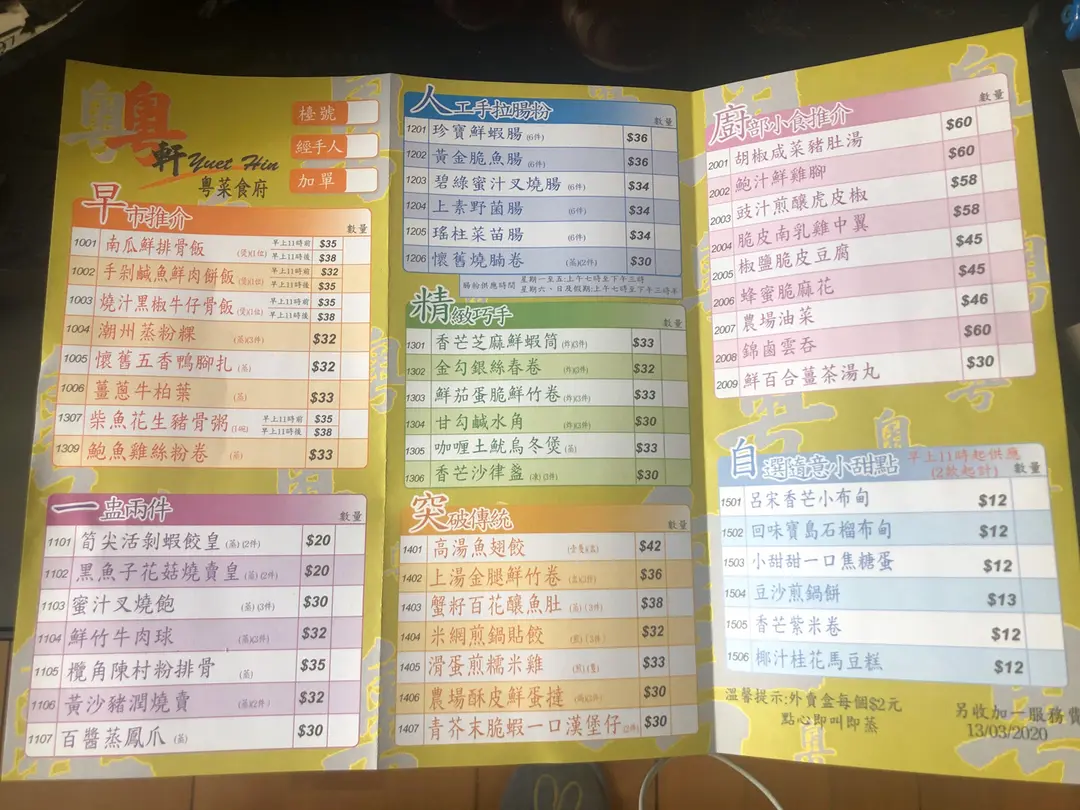 粵
粵軒 Yuet Hin
粵菜食府
檯號
經手人
加單
早市推介 數量
1001 南瓜鮮排骨飯 (煲)(1位) 早上11時前 $35
早上11時後 $38
1002 手剁鹹魚鮮肉餅飯 (煲)(1位) 早上11時前 $32
早上11時後 $35
1003 燒汁黑椒牛仔骨飯 (煲)(1位) 早上11時前 $35
早上11時後 $38
1004 潮州蒸粉粿 (蒸)(3件) $32
1005 懷舊五香鴨腳扎 (蒸) $32
1006 薑蔥牛柏葉 (蒸) $33
1307 柴魚花生豬骨粥 (1碗) 早上11時前 $35
早上11時後 $38
1309 鮑魚雞絲粉卷 (蒸) $33
一盅兩件 數量
1101 筍尖活剝蝦餃皇 (蒸)(2件) $20
1102 黑魚子花菇燒賣皇 (蒸)(2件) $20
1103 蜜汁叉燒飽 (蒸)(3件) $30
1104 鮮竹牛肉球 (蒸)(3件) $32
1105 欖角陳村粉排骨 (蒸) $35
1106 黃沙豬潤燒賣 (蒸)(2件) $32
1107 百醬蒸鳳爪 (蒸) $30
人工手拉腸粉 數量
1201 珍寶鮮蝦腸 (6件) $36
1202 黃金脆魚腸 (6件) $36
1203 碧綠蜜汁叉燒腸 (6件) $34
1204 上素野菌腸 (6件) $34
1205 瑤柱菜苗腸 (6件) $34
1206 懷舊燒腩卷 (蒸)(2件) $30
腸粉供應時間 星期一至五:上午七時至下午三時
星期六、日及假期:上午七時至下午三時半
精緻巧手 數量
1301 香芒芝麻鮮蝦筒 (炸)(3件) $33
1302 金勾銀絲春卷 (炸)(3件) $32
1303 鮮茄蛋脆鮮竹卷 (炸)(3件) $33
1304 甘勾鹹水角 (炸)(3件) $30
1305 咖喱土魷烏冬煲 (蒸) $33
1306 香芒沙律盞 (凍)(3件) $30
突破傳統 數量
1401 高湯魚翅餃 $42
1402 上湯金腿鮮竹卷 (蒸)(3件) $36
1403 蟹籽百花釀魚肚 (蒸)(3件) $38
1404 米網煎鍋貼餃 (煎)(3件) $32
1405 滑蛋煎糯米雞 $33
1406 農場酥皮鮮蛋撻 $30
1407 青芥末脆蝦一口漢堡仔 (2件) $30
廚部小食推介 數量
2001 胡椒咸菜豬肚湯 $60
2002 鮑汁鮮雞腳 $60
2003 豉汁煎釀虎皮椒 $58
2004 脆皮南乳雞中翼 $58
2005 椒鹽脆皮豆腐 $45
2006 蜂蜜脆麻花 $45
2007 農場油菜 $46
2008 錦鹵雲吞 $60
2009 鮮百合薑茶湯丸 $30
自選隨意小甜點 早上11時起供應
(2款起計) 數量
1501 呂宋香芒小布甸 $12
1502 回味寶島石榴布甸 $12
1503 小甜甜一口焦糖蛋 $12
1504 豆沙煎鍋餅 $13
1505 香芒紫米卷 $12
1506 椰汁桂花馬豆糕 $12
溫馨提示:外賣盒每個$2元
點心即叫即蒸
另收加一服務費
13/03/2020